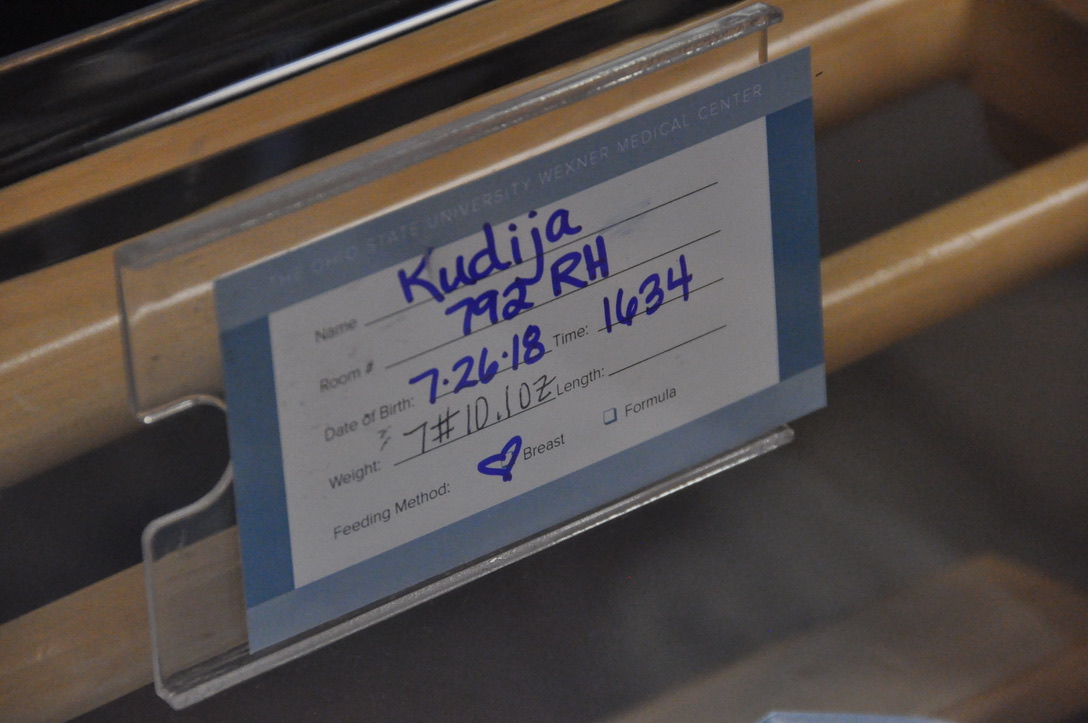 THE OHIO STATE UNIVERSITY WEXNER MEDICAL CENTER
Name Kudija
Room # 792 RH
Date of Birth: 7.26.18 Time: 1634
Weight: 7#10.1oz Length:
Feeding Method: Breast Formula